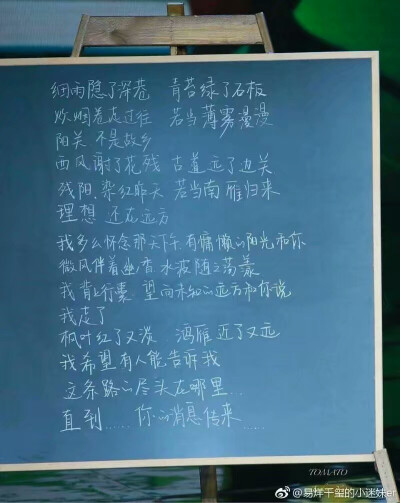 细雨隐了深巷 青苔绿了石板
炊烟卷走过往 若当薄雾漫漫
阳关 不是故乡
西风谢了花残 古道远了边关
残阳.染红昨天 若当南雁归来
理想 还在远方
我多么怀念那天下午 有慵懒的阳光和你
微风伴着幽香 水波随之荡漾
我背上行囊 望向未知的远方和你说
我走了
枫叶红了又淡 鸿雁近了又远
我希望有人能告诉我
这条路的尽头在哪里...
直到..... 你的消息传来.....
TOMATO
@易烊千玺的小迷妹er